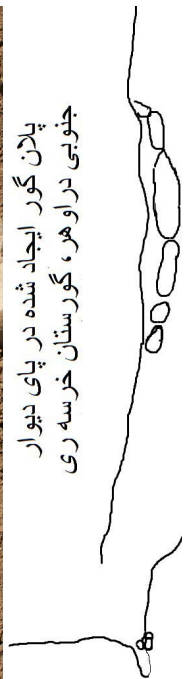 پلان گور ایجاد شده در پای دیوار
جنوبی دراوهر، گورستان خرسه ری